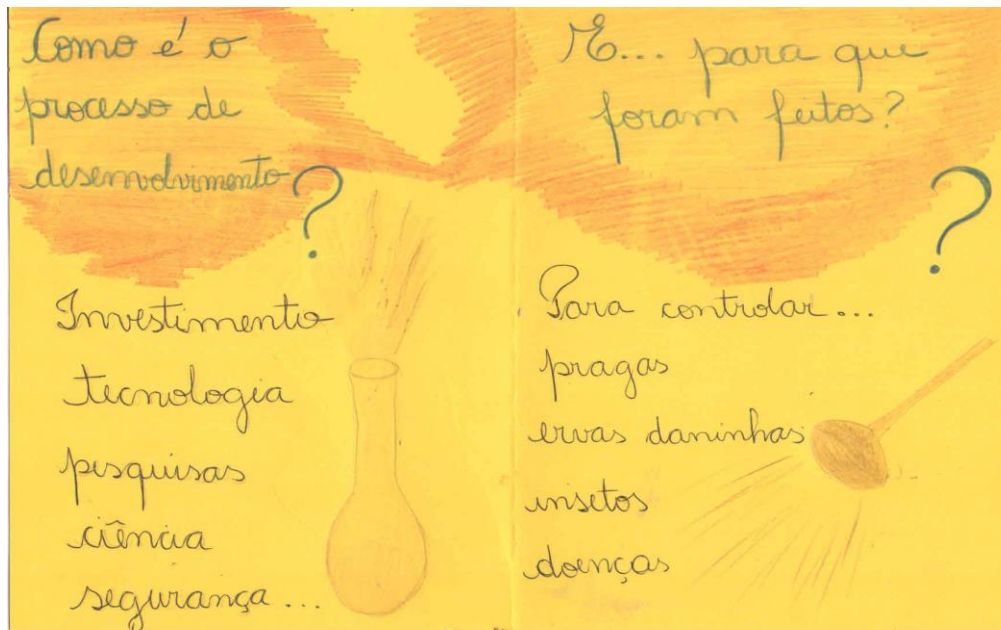 Como é o
processo de
desenvolvimento
?
Investimento
tecnologia
pesquisas
ciência
segurança...
E... para que
foram feitos?
?
Para controlar...
pragas
ervas daninhas
insetos
doenças